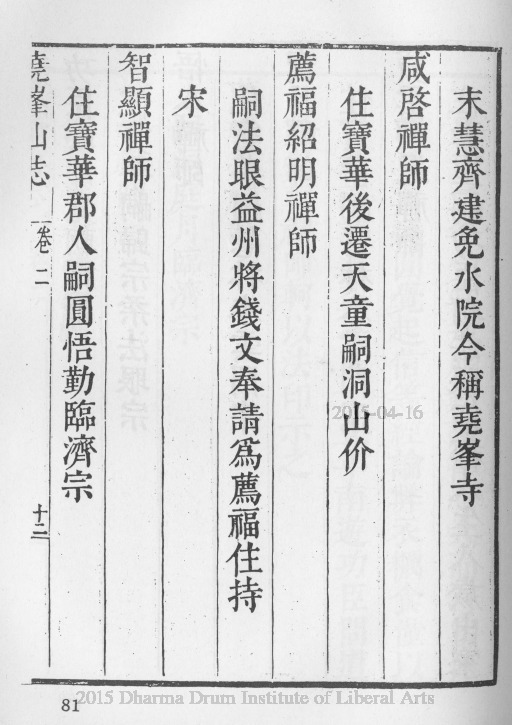 末慧齊建免水院今稱堯峯寺
咸啓禪師
住寶華後遷天童嗣洞山价
薦福紹明禪師
嗣法眼益州將錢文奉請爲薦福住持
宋
智顯禪師
住寶華郡人嗣圓悟勤臨濟宗
堯峯山志 卷二 十二
2015-04-16
81
2015 Dharma Drum Institute of Liberal Arts